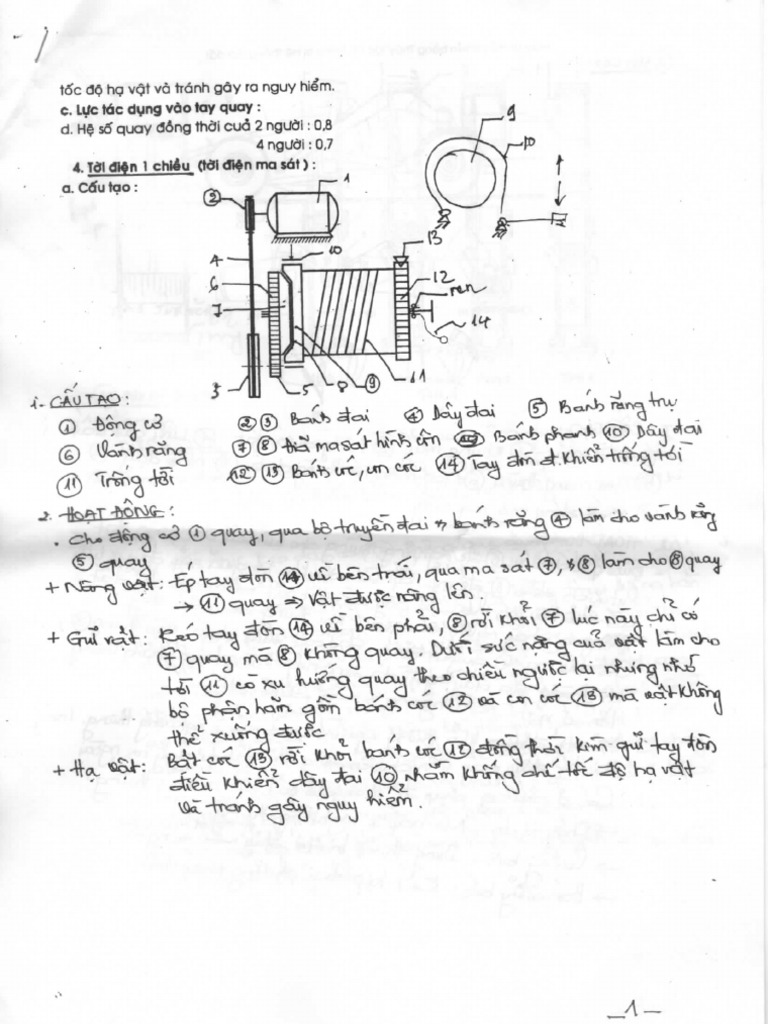 tốc độ hạ vật và tránh gây ra nguy hiểm.
c. Lực tác dụng vào tay quay :
d. Hệ số quay đồng thời cuả 2 người : 0,8
4 người : 0,7
4. Tời điện 1 chiều (tời điện ma sát) :
a. Cấu tạo :
1
2
10
4
6
7
3
5
8
9
11
13
12
ren
14
9
10
1- CẤU TẠO :
① Động cơ ② ③ Bánh đai ④ Dây đai ⑤ Bánh răng trụ
⑥ Vành răng ⑦ ⑧ Đĩa ma sát hình côn Bánh phanh ⑩ Dây đai
⑪ Trống tời ⑫ ⑬ Bánh cóc, con cóc ⑭ Tay đòn đ. khiển trống tời
2. HOẠT ĐỘNG :
. Cho động cơ ① quay, qua bộ truyền đai bánh răng ④ làm cho vành răng
⑤ quay
+ Nâng vật : Ép tay đòn ⑭ về bên trái, qua ma sát ⑦, ⑧ làm cho ⑧ quay
→ ⑪ quay ⇒ vật được nâng lên.
+ Giữ vật : Kéo tay đòn ⑭ về bên phải, ⑧ rời khỏi ⑦ lúc này chỉ có
⑦ quay mà ⑧ không quay. Dưới sức nặng của vật làm cho
tời ⑪ có xu hướng quay theo chiều ngược lại nhưng nhờ
bộ phận hãm gồm bánh cóc ⑫ và con cóc ⑬ mà vật không
thể xuống được
+ Hạ vật : Bật cóc ⑬ rời khỏi bánh cóc ⑫ đồng thời kìm giữ tay đòn
điều khiển dây đai ⑩ nhằm khống chế tốc độ hạ vật
và tránh gây nguy hiểm.
_1_